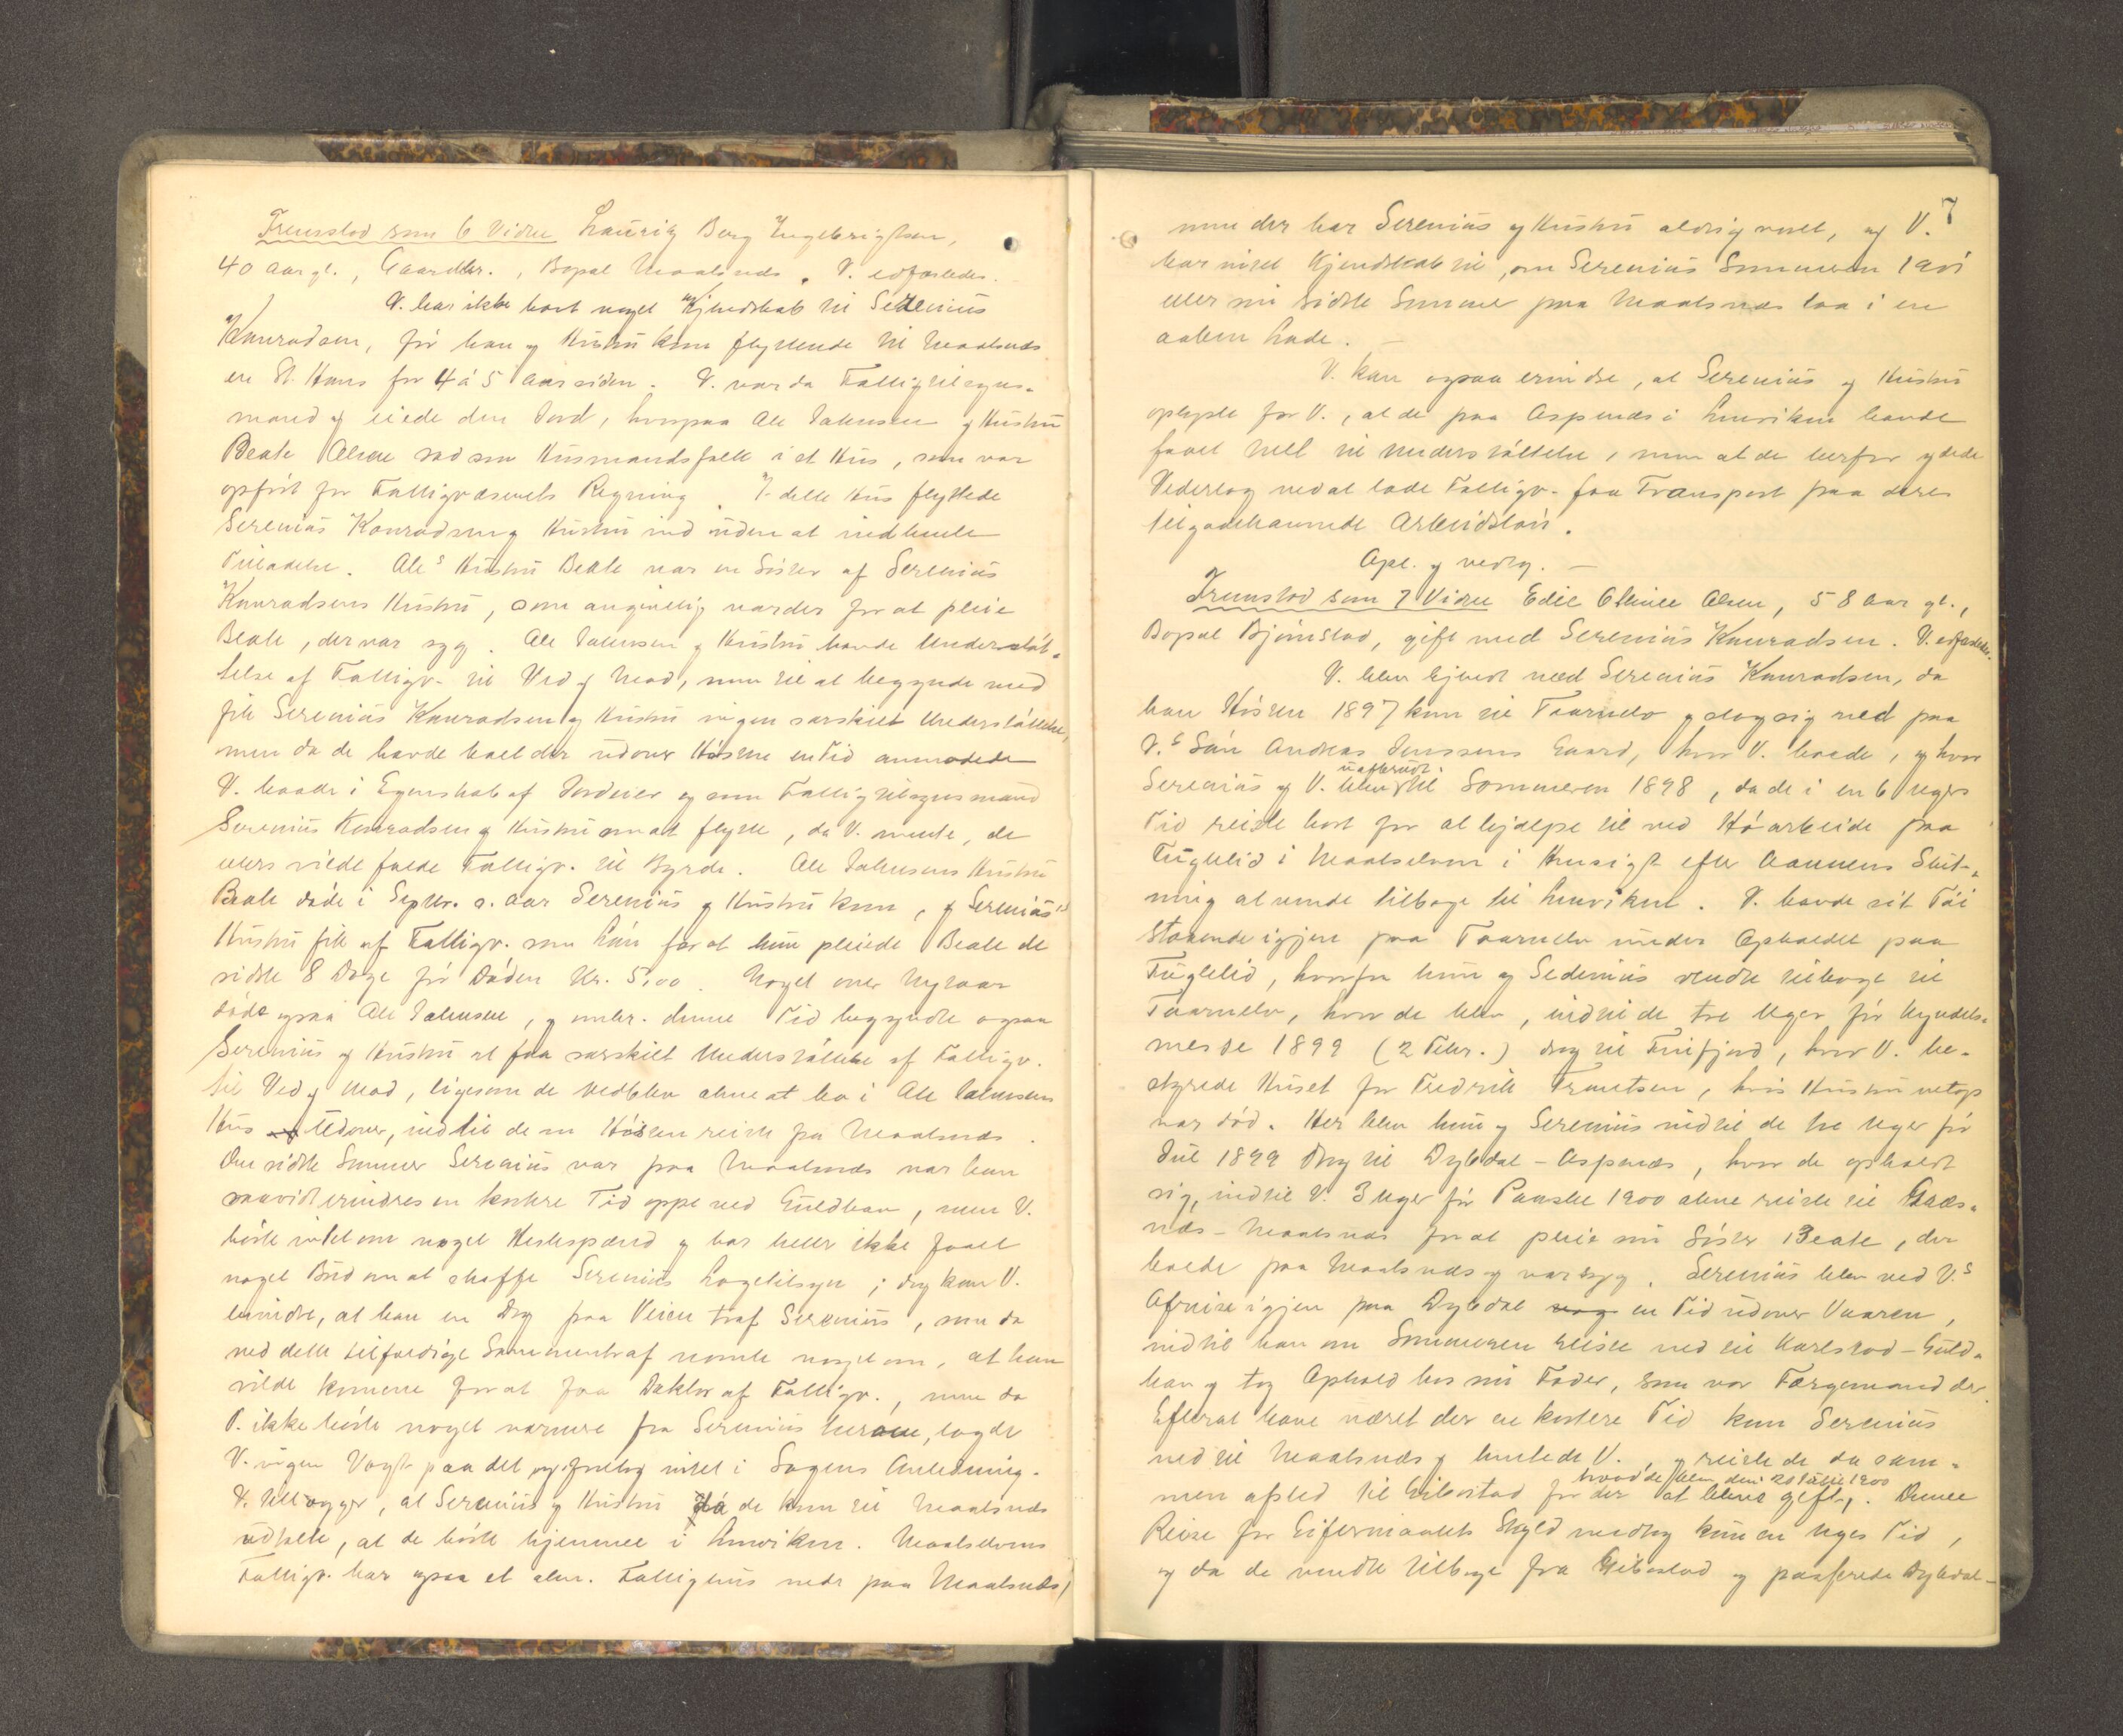 Fremstod som 6 Vidne Lauritz Berg Ingebrigtsen,
40 aar gl., Gaardbr., Bopæl Maalsnæs. V. edfæstedes.
V. har ikke havt noget Kjendskab til Serenius
Konradsen, før han og Hustru kom flyttende til Maalsnæs
en St. Hans for 4 á 5 Aar siden. V. var da Fattigtilsyns-
mand og eiede den Jord, hvorpaa Ale Johnsen og Hustru
Beate Olsen sad som Husmandsfolk i et Hus, som var
opført for Fattigvæsenets Regning. I dette Hus flyttede
Serenius Konradsen og Hustru ind uden at indhente
Tilladelse. Ales Hustru Beate var en Søster af Serenius
Konradsens Hustru, som angivelig var der for at pleie
Beate, der var syg. Ale Johnsen og Hustru havde Understøt-
telse af Fattigv. til Ved og Mad, men til at begynde med
fik Serenius Konradsen og Hustru ingen særskilt Understøttelse,
men da de havde boet der udover Høsten en Tid anmodede
V. baade i Egenskab af Jordeier og som Fattigtilsynsmand
Serenius Konradsen og Hustru om at flytte, da V. mente, de
ellers vilde falde Fattigv. til Byrde. Ale Johnsens Hustru
Beate døde i Septbr. s. Aar Serenius og Hustru kom, og Serenius's
Hustru fik af Fattigv. som Løn for at hun pleiede Beate de
sidste 8 Dage før Døden Kr. 5,00. Noget over Nytaar
døde ogsaa Ale Johnsen, og omtr. denne Tid begyndte ogsaa
Serenius og Hustru at faa særskilt Understøttelse af Fattigv.
til Ved og Mad, ligesom de vedblev alene at bo i Ale Johnsens
Hus udover, indtil de om Høsten reiste fra Maalsnæs.
Den sidste Sommer Serenius var paa Maalsnæs var han
saavidt erindres en kortere Tid oppe ved Guldhav, men V.
hørte intet om noget Hestespænd og har heller ikke faaet
noget Bud om at skaffe Serenius Lægetilsyn; dog kan V.
erindre, at han en Dag paa Veien traf Serenius, som da
ved dette tilfældige Sammentræf nævnte noget om, at han
vilde komme for at faa Doktor af Fattigv., men da
V. ikke hørte noget nærmere fra Serenius herom, lagde
V. ingen Vægt paa det og foretog intet i Sagens Anledning.
V. tillægger, at Serenius og Hustru da de kom til Maalsnæs
udtalte, at de hørte hjemme i Lenviken. Maalselvens
Fattigv. har ogsaa et alm. Fattighus nede paa Maalsnæs,
7
men der har Serenius og Hustru aldrig været, og V.
har intet Kjendskab til, om Serenius Sommeren 1901
eller sin sidste Sommer paa Maalsnæs laa i en
aaben Lade. –
V. kan ogsaa erindre, at Serenius og Hustru
oplyste for V., at de paa Aspenæs i Lenviken havde
faaet Mel til Understøttelse, men at de herfor ydede
Vederlag ved at lade Fattigv. faa Transport paa deres
tilgodehavende Arbeidsløn.
Opl. og vedtg. –
Fremstod som 7 Vidne Edie Oline Olsen, 58 Aar gl.,
Bopæl Bjørnstad, gift med Serenius Konradsen. V. edfæstedes.
V. blev kjendt med Serenius Konradsen, da
han Høsten 1897 kom til Taarnelv og slog sig ned paa
V.s Søn Andreas Jenssens Gaard, hvor V. boede, og hvor
Serenius og V. blev uafbrudt til Sommeren 1898, da de i en 6 Ugers
Tid reiste bort for at hjælpe til ved Høarbeide paa
Fuglelid i Maalselven i Hensigt efter Aannens Slut-
ning at vende tilbage til Lenviken. V. havde sit Tøi
staaende igjen paa Taarnelv under Opholdet paa
Fuglelid, hvorfor hun og Serenius vendte tilbage til
Taarnelv, hvor de blev, indtil de tre Uger før Kyndels-
messe 1899 (2 Febr.) drog til Finfjord, hvor V. be-
styrede Huset for Fredrik Frantsen, hvis Hustru netop
var død. Her blev hun og Serenius indtil de tre Uger før
Jul 1899 drog til Dybdal – Aspenæs, hvor de opholdt
sig, indtil V. 3 Uger før Paaske 1900 alene reiste til Græs-
næs – Maalsnæs for at pleie sin Søster Beate, der
boede paa Maalsnæs og var syg. Serenius blev ved V.s
Afreise igjen paa Dybdal en Tid udover Vaaren,
indtil han om Sommeren reiste ned til Karlstad – Guld-
hav og tog Ophold hos sin Fader, som var Færgemand der.
Efterat have været der en kortere Tid kom Serenius
ned til Maalsnæs og hentede V., og reiste de da sam-
men afsted til Gibostad for der at blive gift, hvad de blev den 20 Juli 1900. Denne
Reise for Giftermaalets Skyld medtog kun en Uges Tid,
og da de vendte tilbage fra Gibostad og passerede Dybdal –